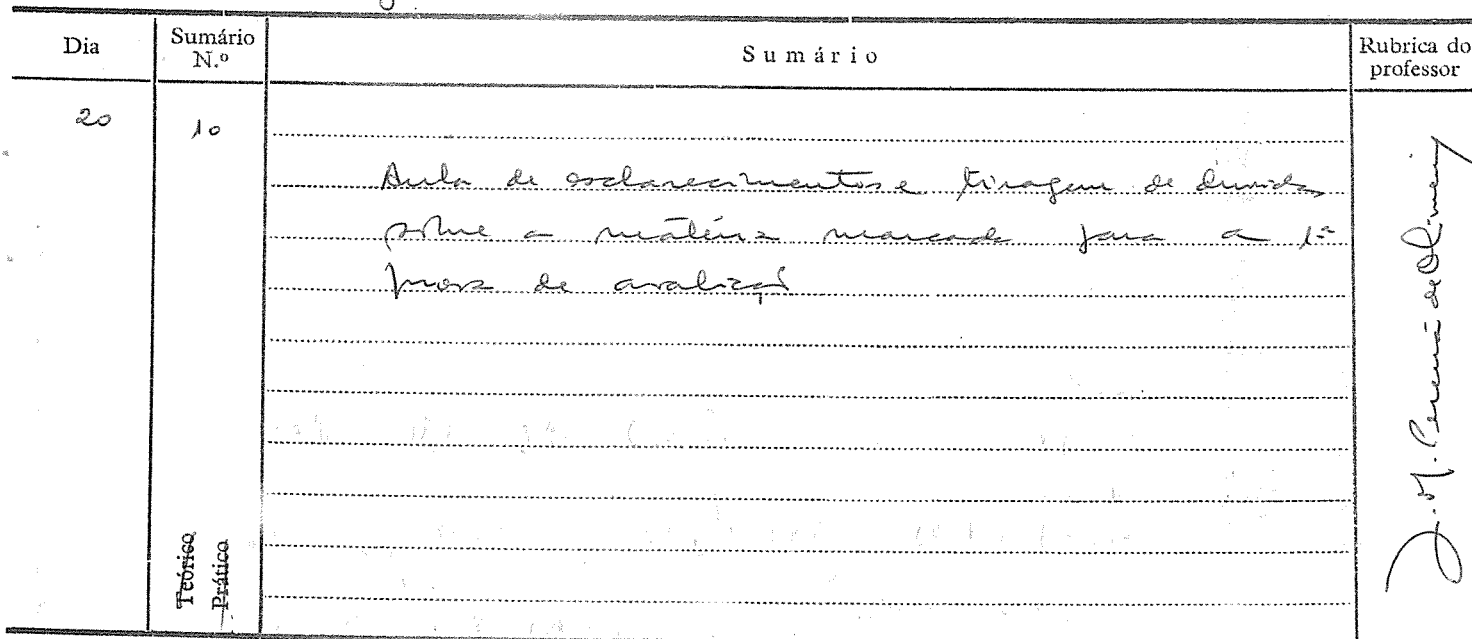 Dia
Sumário N.º
Sumário
Rubrica do professor
20
10
Aula de esclarecimentos e tiragem de dúvidas
sobre a matéria marcada para a 1ª
prova de avaliação
Teórico
Prático
J. M. Pereira de Oliveira